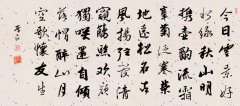 今日雲景好
水綠秋山明
攜壺酌流霞
搴菊泛寒榮
地遠松石古
風揚弦管清
窺觴照歡顏
獨笑還自傾
落帽醉山月
空歌懷友生